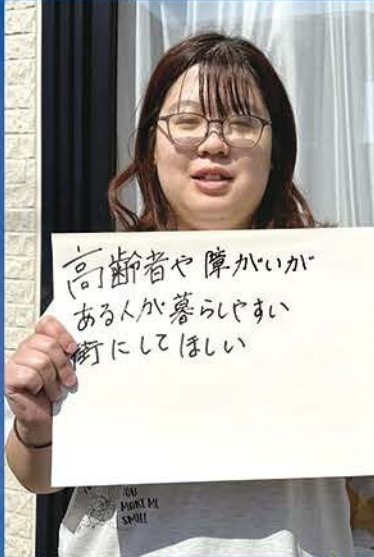 高齢者や障がいが
ある人が暮らしやすい
街にしてほしい
YOU
MAKE ME
SMILE